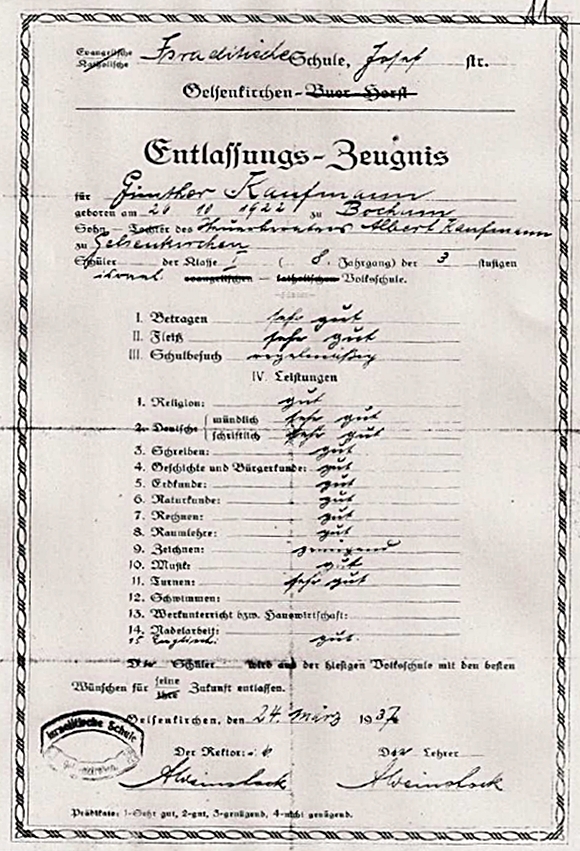 11
Evangelische
Katholische Israelitische Schule, Josef str.
Gelsenkirchen-Buer-Horst
Entlassungs-Zeugnis
für Günther Kaufmann
geboren am 20 10 1922 zu Bochum
Sohn - Tochter des Steuerberaters Albert Kaufmann
zu Gelsenkirchen
Schüler der Klasse I ( 8. Jahrgang) der 3 stufigen
israel. evangelischen - katholischen Volksschule.
I. Betragen sehr gut
II. Fleiß sehr gut
III. Schulbesuch regelmäßig
IV. Leistungen
1. Religion: gut
2. Deutsch: mündlich sehr gut
schriftlich sehr gut
3. Schreiben: gut
4. Geschichte und Bürgerkunde: gut
5. Erdkunde: gut
6. Naturkunde: gut
7. Rechnen: gut
8. Raumlehre: gut
9. Zeichnen: genügend
10. Musik: gut
11. Turnen: sehr gut
12. Schwimmen:
13. Werkunterricht bzw. Hauswirtschaft:
14. Nadelarbeit:
15 Englisch: gut.
Der Schüler wird aus der hiesigen Volksschule mit den besten
Wünschen für seine
ihre Zukunft entlassen.
Gelsenkirchen, den 24. März 1937
Israelitische Schule
Gelsenkirchen
Der Rektor: Der Lehrer
AWeinstock AWeinstock
Prädikate: 1-Sehr gut, 2-gut, 3-genügend, 4-nicht genügend.